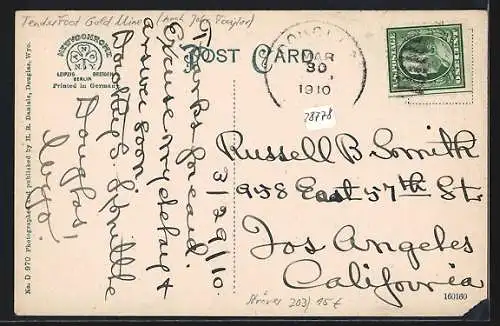 Tenderfoot Gold Mine (hinh John Taylor)
NEWVOCHROME
ANCO
N.Y.
LEIPZIG DRESDEN
BERLIN
Printed in Germany
POST CARD
MAR
30
1910
28778
No. D 970 Photographed and published by H. R. Daniels, Douglas, Wyo.
3/29/10.
Thanks for card.
Excuse my delay &
answer soon
Dorothy S.
Douglas,
Wyo.
Russell B Smith
938 East 57th St.
Los Angeles
California
203/ 15 €
160160